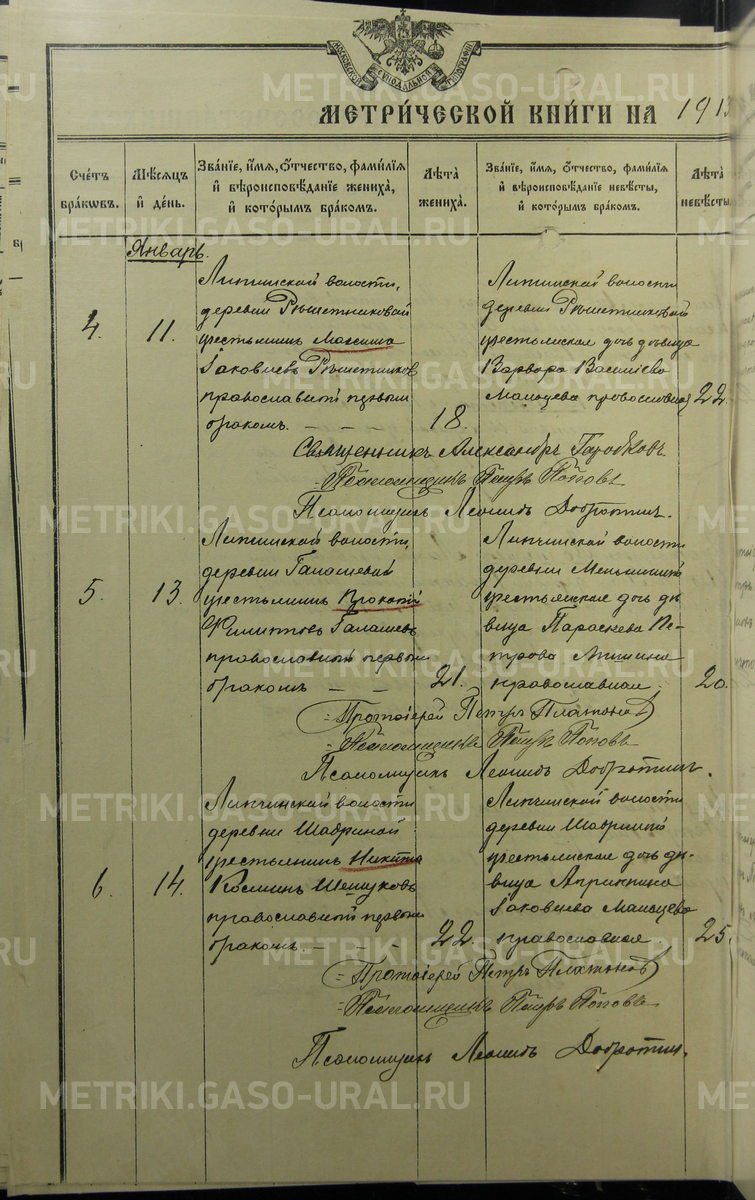 МОСКОВСКОЙ СѴНОДАЛЬНОЙ ТИПОГРАФІИ
МЕТРИ́ЧЕСКОЙ КНИ́ГИ НА 191
Сче́тъ бра́кѡвъ.
Мѣ́сѧцъ и҆ де́нь.
Зва́нїе, и҆́мѧ, ѻ҆́тчество, фами́лїѧ и҆ вѣроисповѣ́данїе жениха̀, и҆ кото́рымъ бра́комъ.
Лѣ́та жениха̀.
Зва́нїе, и҆́мѧ, ѻ҆́тчество, фами́лїѧ и҆ вѣроисповѣ́данїе невѣ́сты, и҆ кото́рымъ бра́комъ.
Лѣ́та невѣ́сты
Январь.
4.
11.
Липчинской волости,
деревни Рѣшетниковой
крестьянинъ Максимъ
Іаковлевъ Рѣшетниковъ
православный первымъ
бракомъ. - - -
18.
Липчинской волости
деревни Рѣшетниковой
крестьянская дочь дѣвица
Варвара Василіева
Мальцева православная
22.
Священникъ Александръ
Псаломщикъ Петръ Поповъ
Псаломщикъ Леонидъ Добротинъ.
5.
13.
Липчинской волости,
деревни Галашевой
крестьянинъ Прокопій
Филипповъ Галашевъ
православный первымъ
бракомъ - -
21.
Липчинской волости
деревни
крестьянская дочь дѣ-
вица Параскева Пе-
трова
православная.
20.
Протоіерей Петръ Платоновъ
Псаломщикъ Петръ Поповъ
Псаломщикъ Леонидъ Добротинъ.
6.
14.
Липчинской волости
деревни Шавриной
крестьянинъ Никита
Косминъ Шешуковъ
православный первымъ
бракомъ. - - -
22.
Липчинской волости
деревни Шавриной
крестьянская дочь дѣ-
вица Агрипина
Іаковлева Мальцева
православная.
25.
Протоіерей Петръ Платоновъ
Псаломщикъ Петръ Поповъ
Псаломщикъ Леонидъ Добротинъ.
METRIKI.GASO-URAL.RU